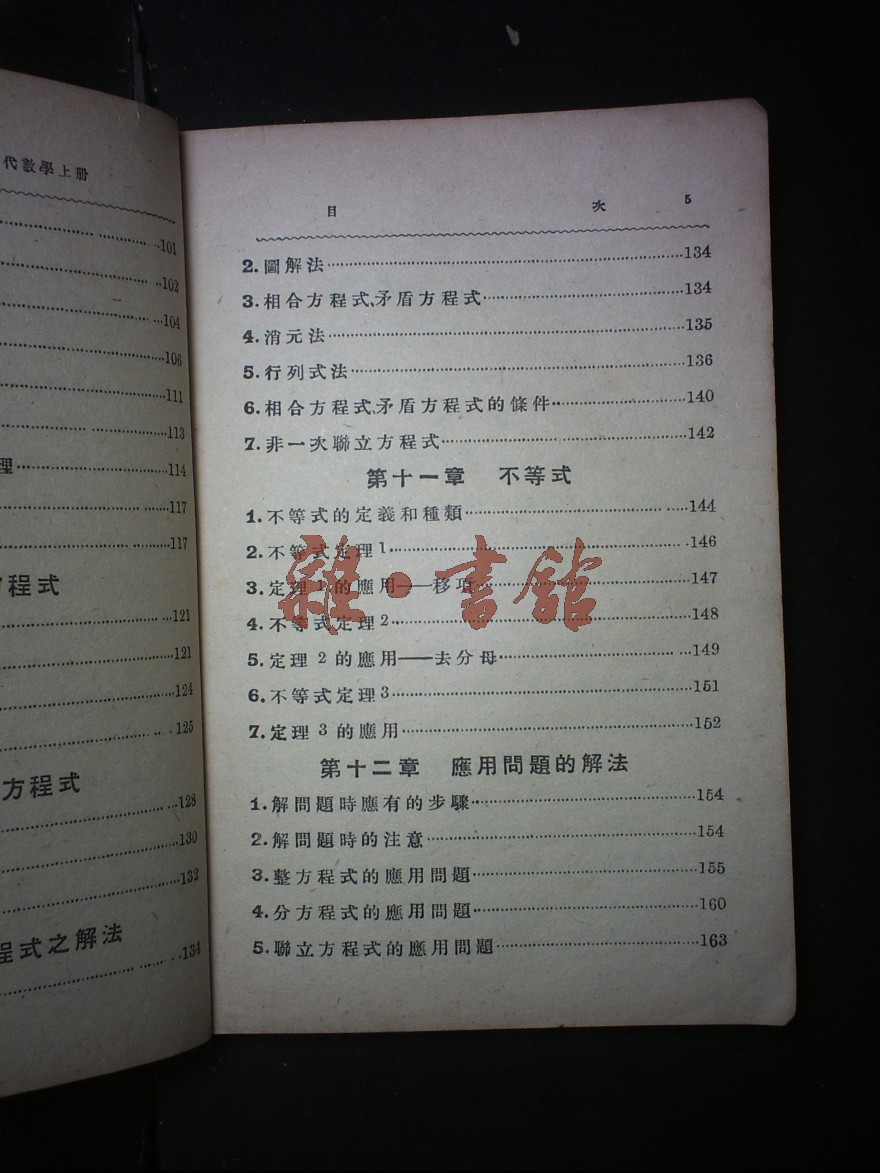 代數學上册
101
102
104
106
111
113
理 114
117
117
方程式
121
121
124
125
方方程式
128
130
132
程式之解法
134
目 次 5
2.圖解法 134
3.相合方程式、矛盾方程式 134
4.消元法 135
5.行列式法 136
6.相合方程式、矛盾方程式的條件 140
7.非一次聯立方程式 142
第十一章 不等式
1.不等式的定義和種類 144
2.不等式定理1 146
3.定理1的應用——移項 147
4.不等式定理2 148
5.定理2的應用——去分母 149
6.不等式定理3 151
7.定理3的應用 152
第十二章 應用問題的解法
1.解問題時應有的步驟 154
2.解問題時的注意 154
3.整方程式的應用問題 155
4.分方程式的應用問題 160
5.聯立方程式的應用問題 163
雜·書館